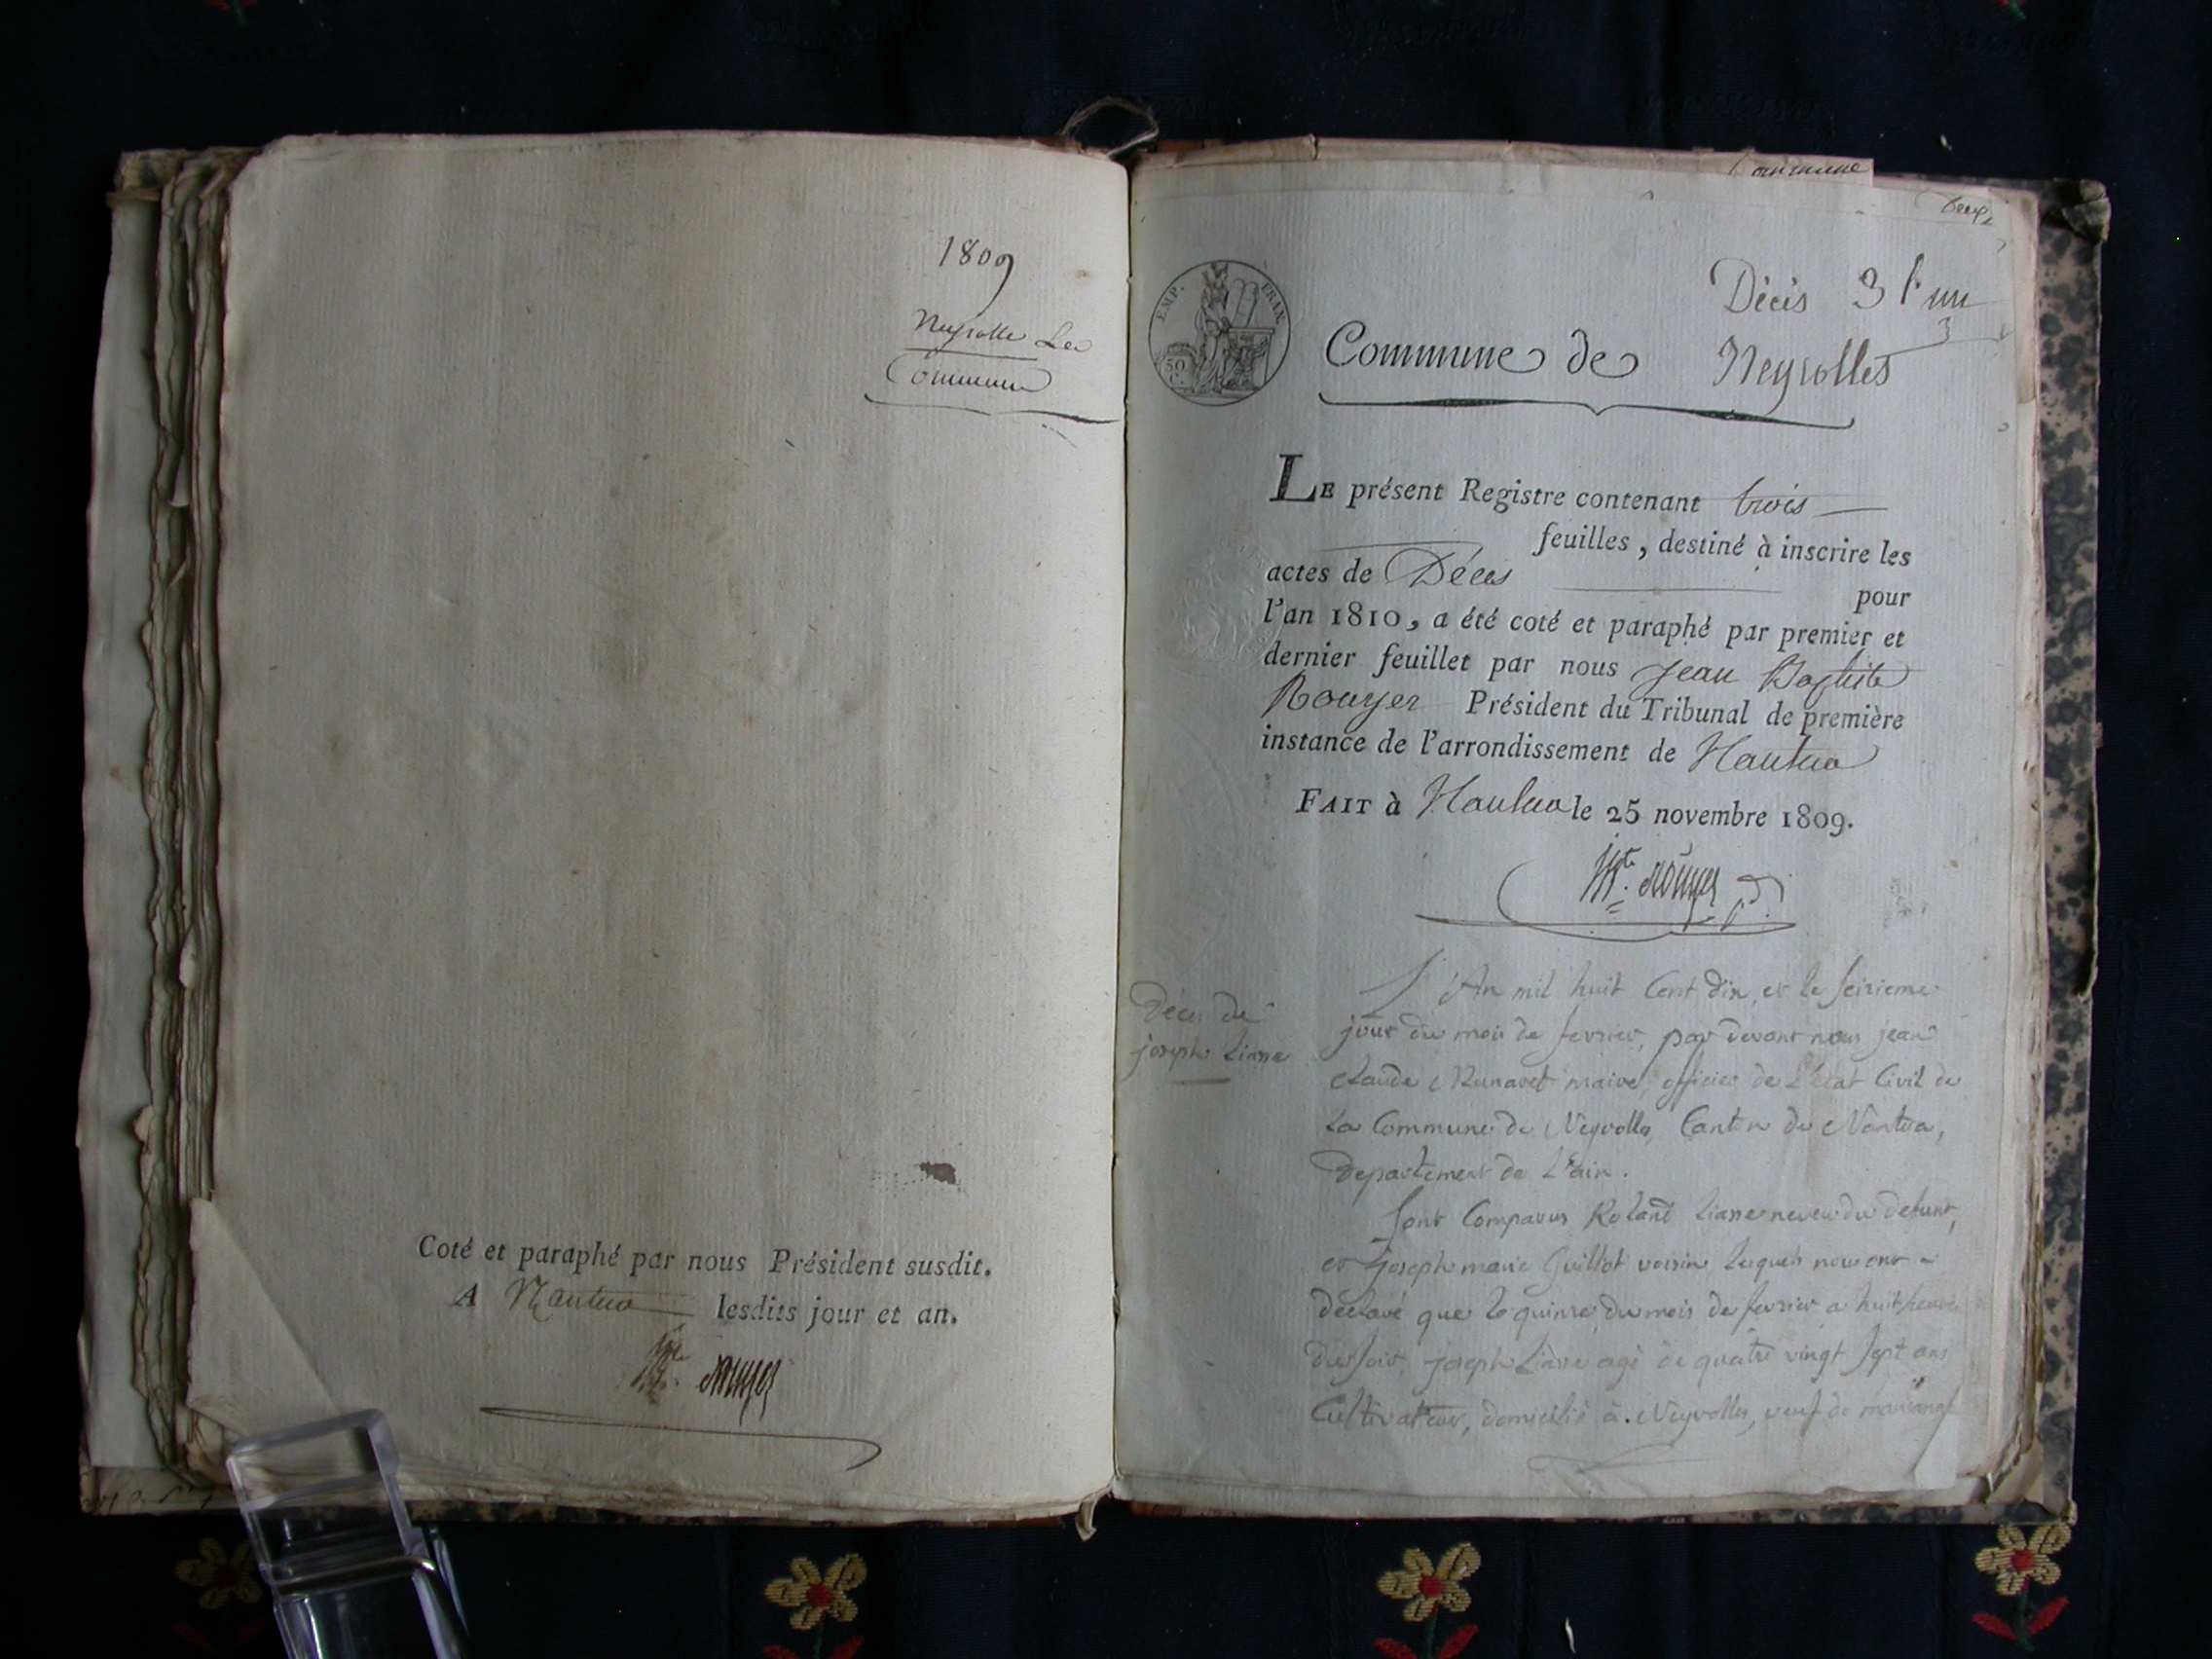 1809
Neyrolle Les
Commune
Coté et paraphé par nous Président susdit.
A Nantua lesdits jour et an.
Bte. Rouyer
Commune
Décès 3 f. un
3
EMP. FRAN.
50 C.
Commune de Neyrolles
LE présent Registre contenant trois
feuilles, destiné à inscrire les
actes de Décès
pour
l'an 1810, a été coté et paraphé par premier et
dernier feuillet par nous Jean Baptiste
Rouyer Président du Tribunal de première
instance de l'arrondissement de Nantua
FAIT à Nantua le 25 novembre 1809.
Bte. Rouyer
Déces de
joseph Liasse
L'An mil huit Cent dix, et le seizieme
jour du mois de fevrier, par devant nous jean
claude Munaret maire, officier de L'état Civil de
La Commune de Neyrolles, Canton de Nantua,
Departement de L'ain.
Sont Comparus Roland Liasse neveu du defunt,
et joseph marie Guillot voisin, lesquels nous ont
déclaré que le quinze du mois de fevrier a huit heures
du soir, joseph Liasse agé de quatre vingt sept ans
Cultivateur, domicilié à Neyrolles, veuf de